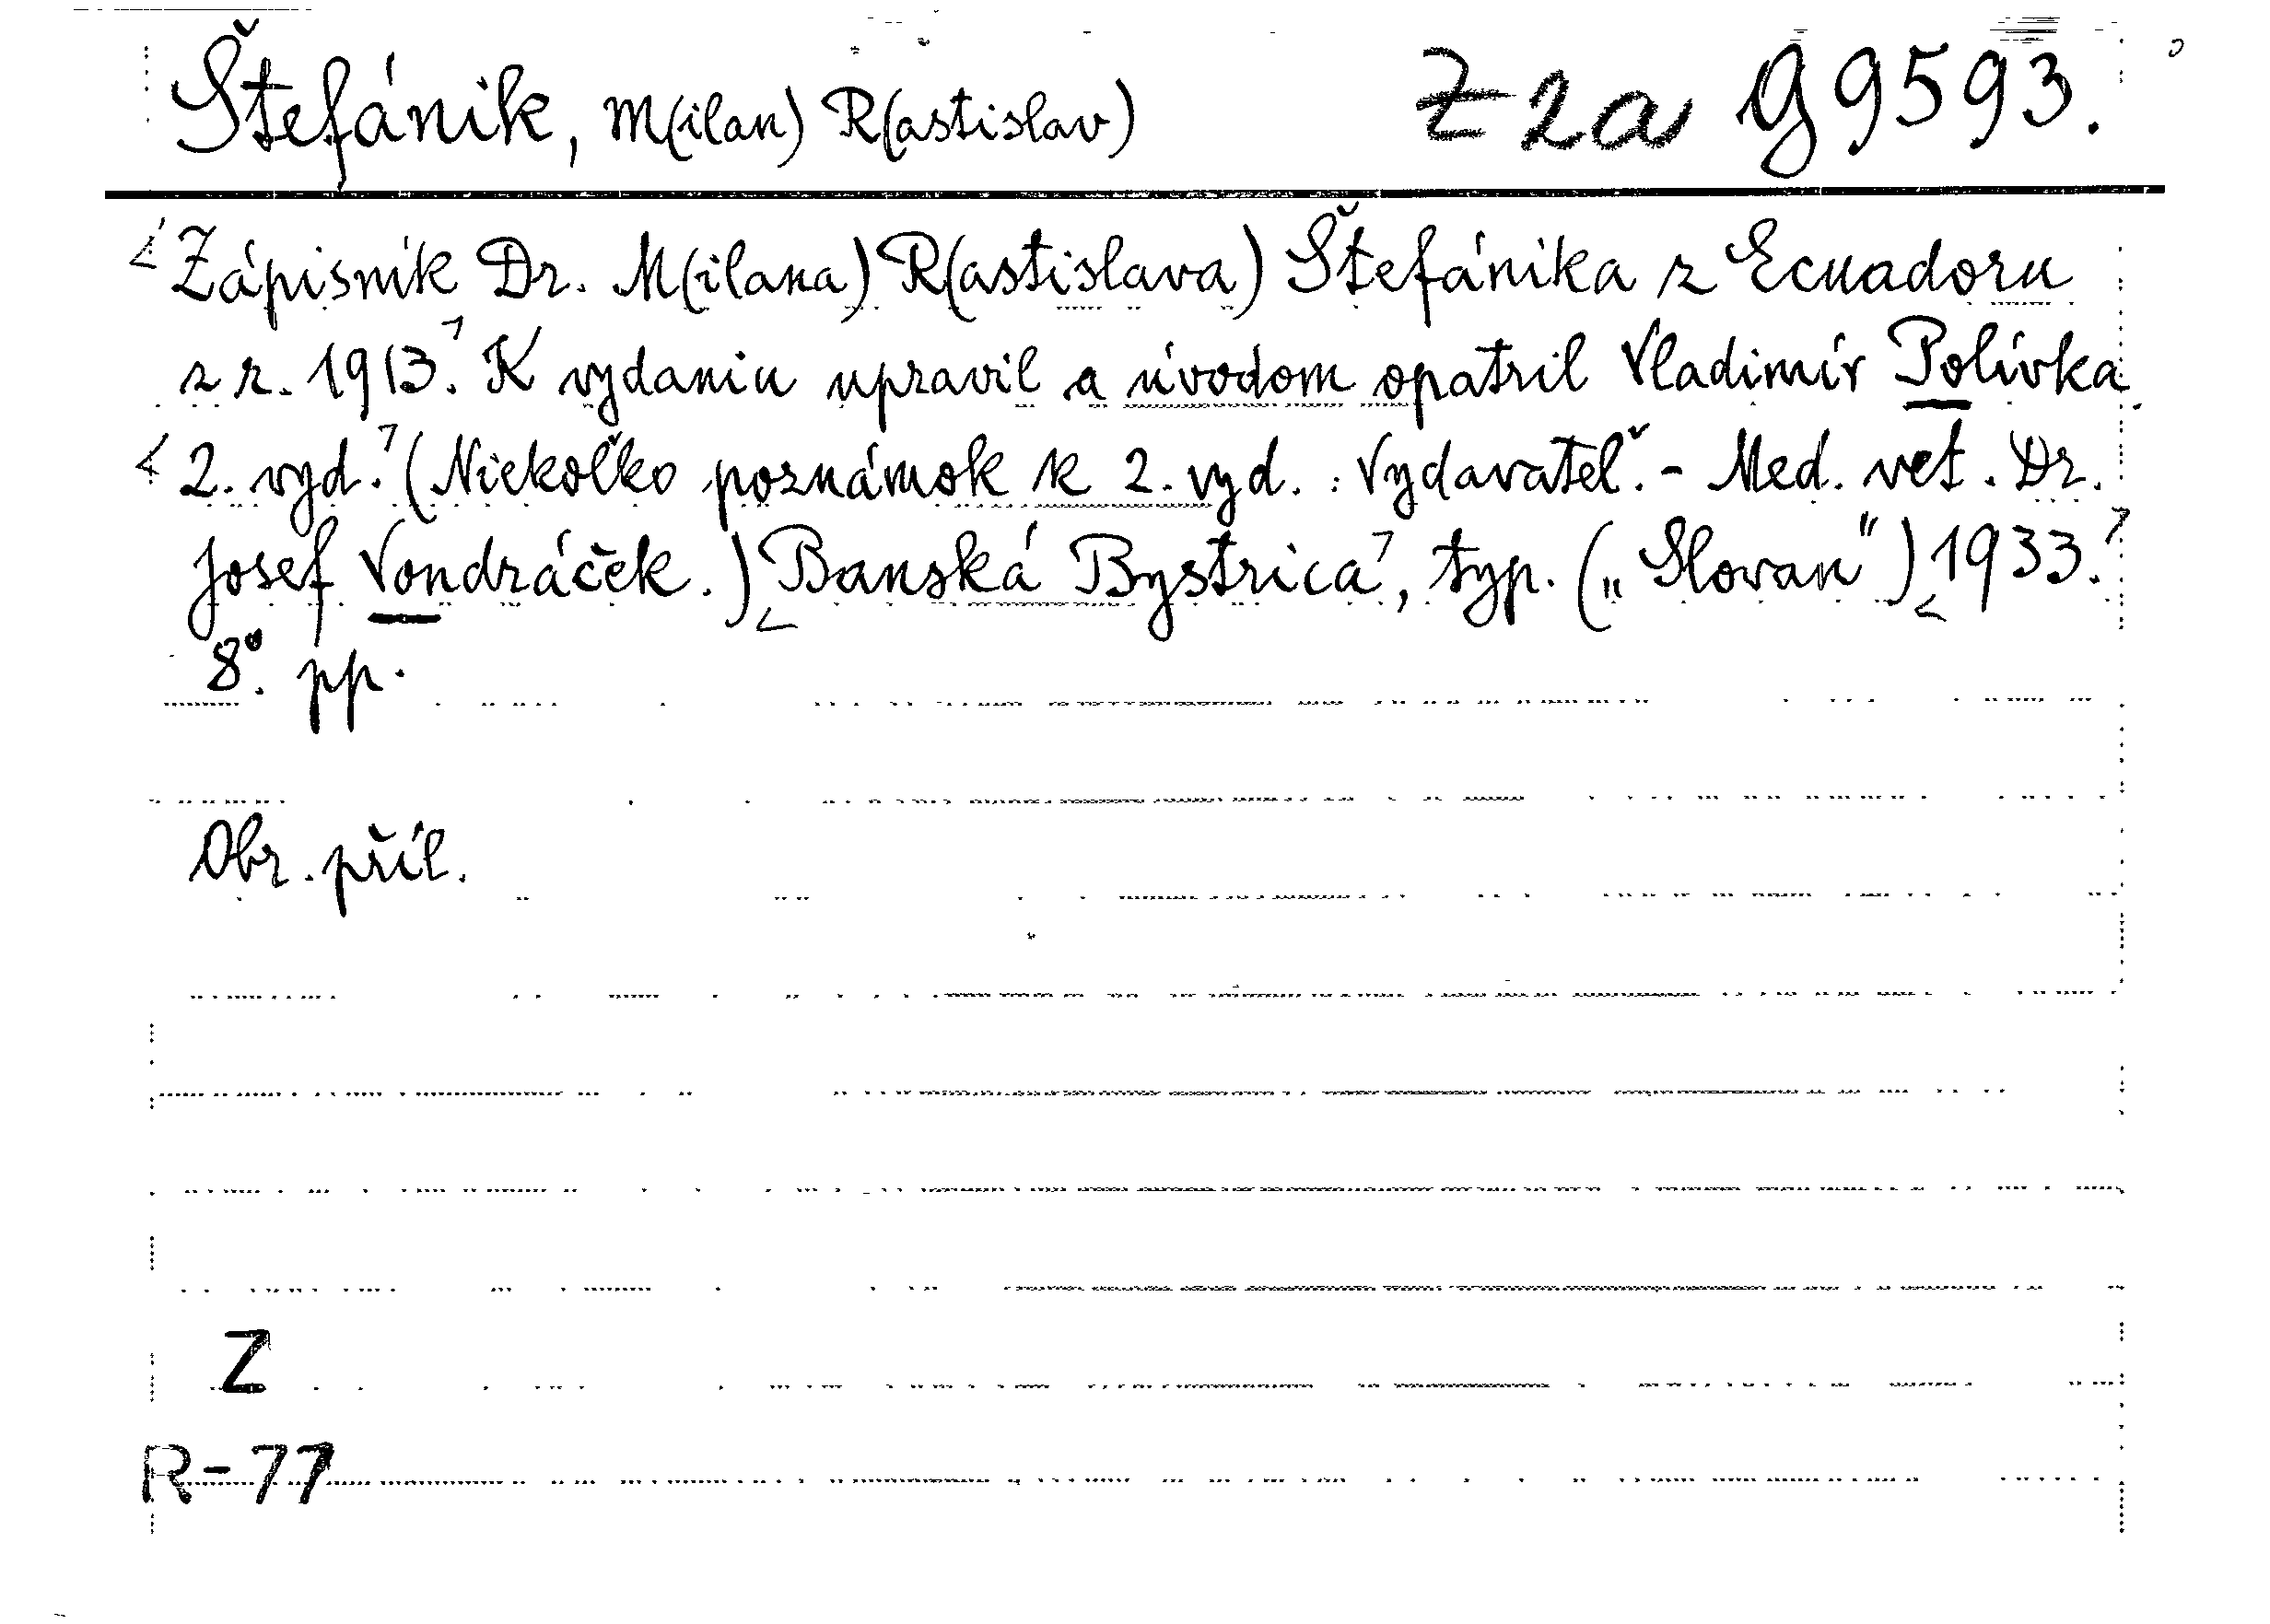 Štefánik, M(ilan) R(astislav) Z 2a g 9593.
Zápisník Dr. M(ilana) R(astislava) Štefánika z Ecuadoru
z r. 1913. K vydaniu upravil a úvodom opatril Vladimír Polívka.
2. vyd. (Niekoľko poznámok k 2. vyd. : Vydavateľ. - Med. vet. Dr.
Josef Vondráček.) Banská Bystrica, typ. („Slovan“) 1933.
8°. pp.
Obr. příl.
Z
R-77